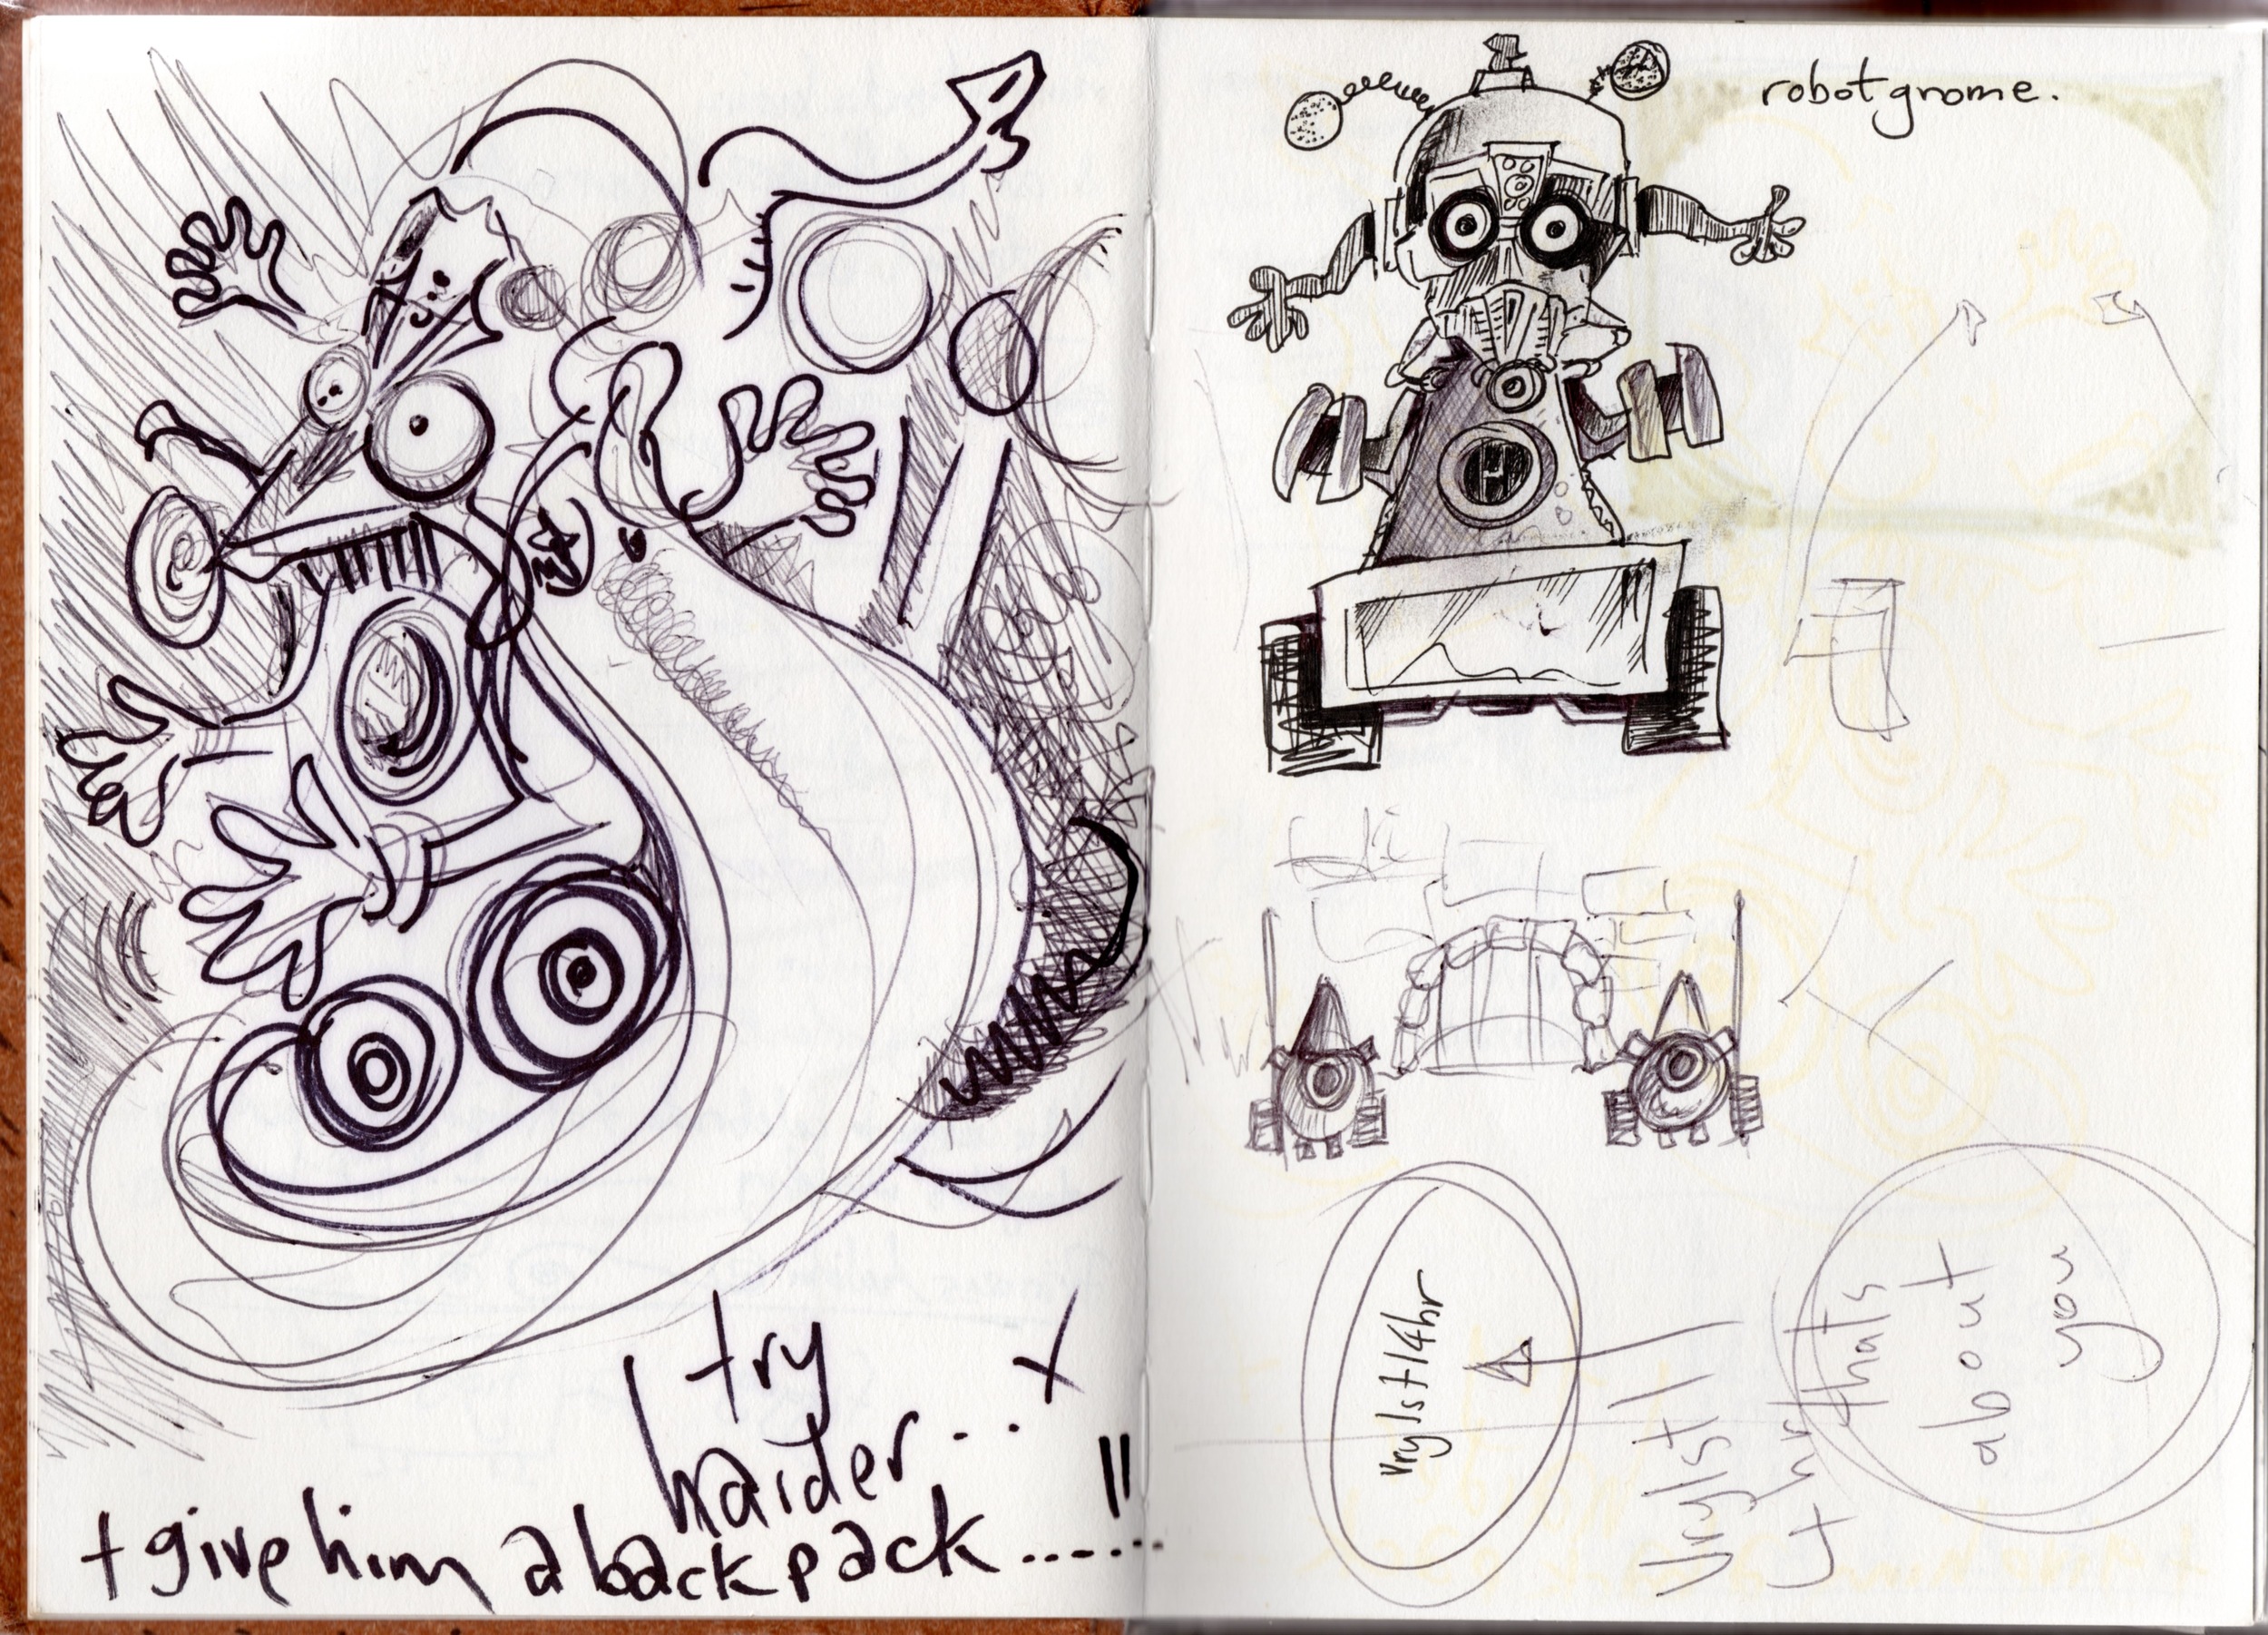 try
haider...x
+give him a backpack......!!
robot gnome.
vrylst14hr
vrylst11
4hr
thats
about
you